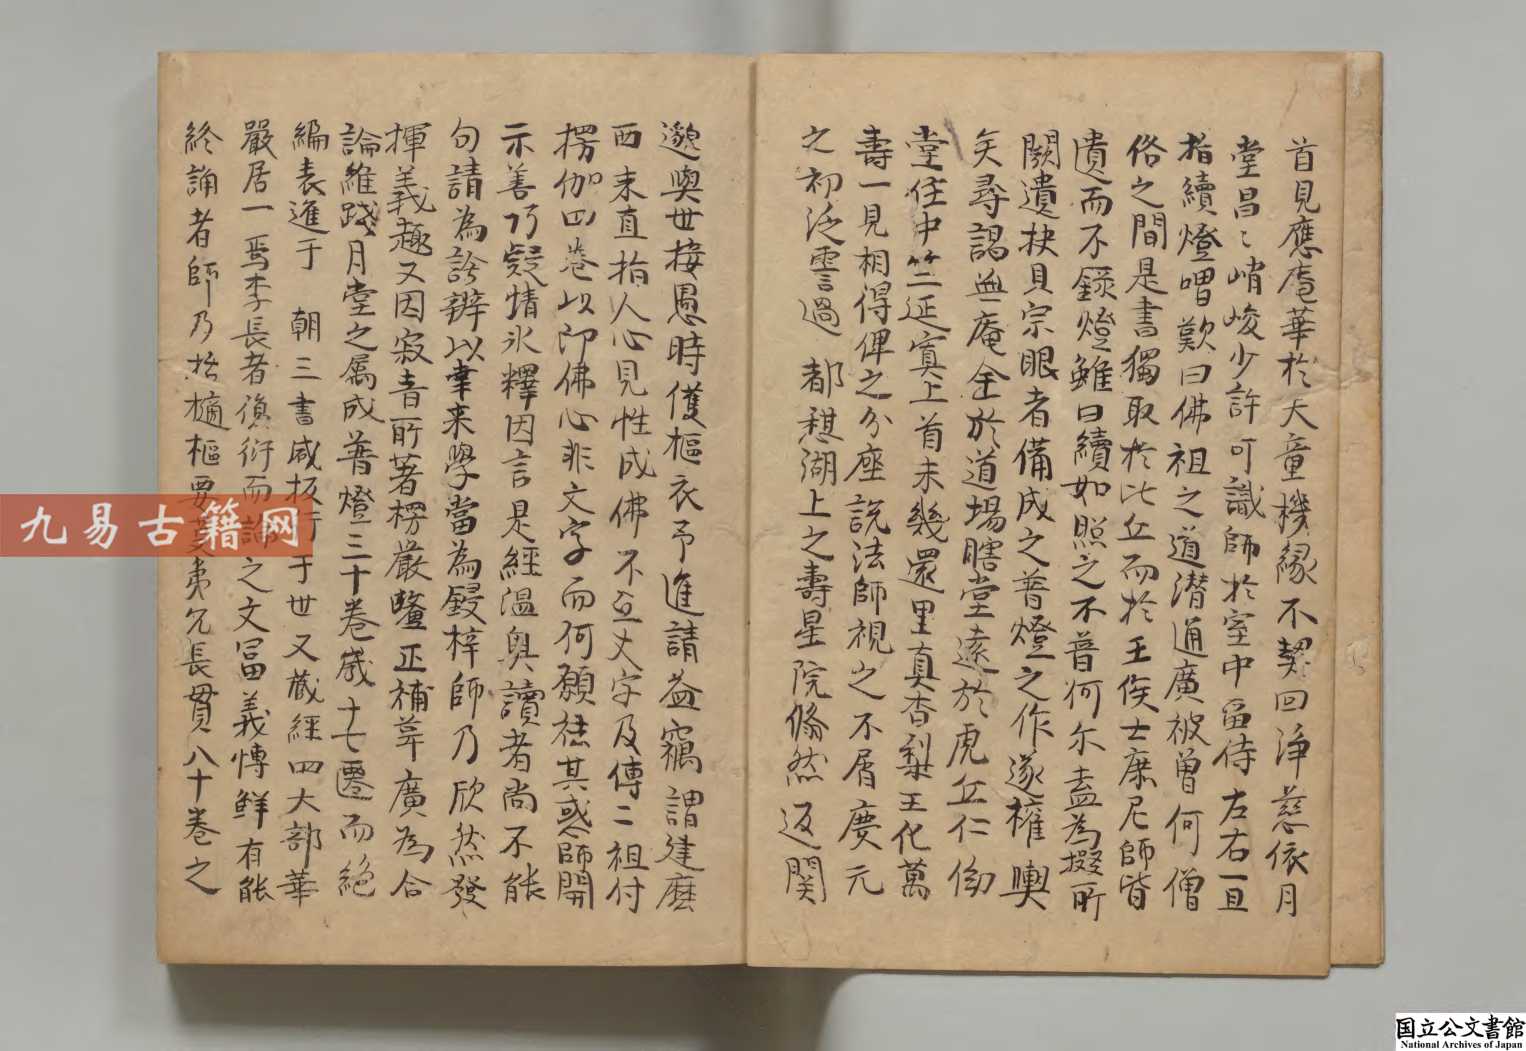 首見應庵華於大童機緣不契回淨慈依月
堂昌〻峭峻少許可識師於室中畱侍左右一旦
指續燈喟歎曰佛祖之道潜通廣被曽何僧
俗之間是書獨取於比丘而於王侯士庶尼師皆
遺而不錄燈雖曰續如照之不普何尓盍為掇所
闕遺抉具宗眼者備成之普燈之作遂權輿
矣尋謁無庵全於道場瞎堂遠於虎丘仁
堂任中竺延寘上首未幾還里真杏梨王化萬
壽一見相得俾之分座説法師視之不屑慶元
之初泛雪過都憇湖上之壽星院翛然返関
邈與世接愚時獲樞衣予進請益竊謂達麽
西来直指人心見性成佛不立文字及傳二祖付
楞伽四巻以印佛心非文字而何願祛其惑師開
示善巧疑情氷釋因言是經温奥讀者尚不能
句請為詮辨以幸来學當為鋟梓師乃欣然發
揮義趣又因寂音所著楞嚴鹽正補葺廣為合
論維踐月堂之属成普燈三十巻歳十七遷而絶
編表進于 朝三書咸板行于世又蔵經四大部華
嚴居一焉李長者湏衍而論之文冨義愽鮮有能
終誦者師乃拾樀樞要莫弗允長貫八十巻之
九易古籍网
国立公文書館
National Archives of Japan